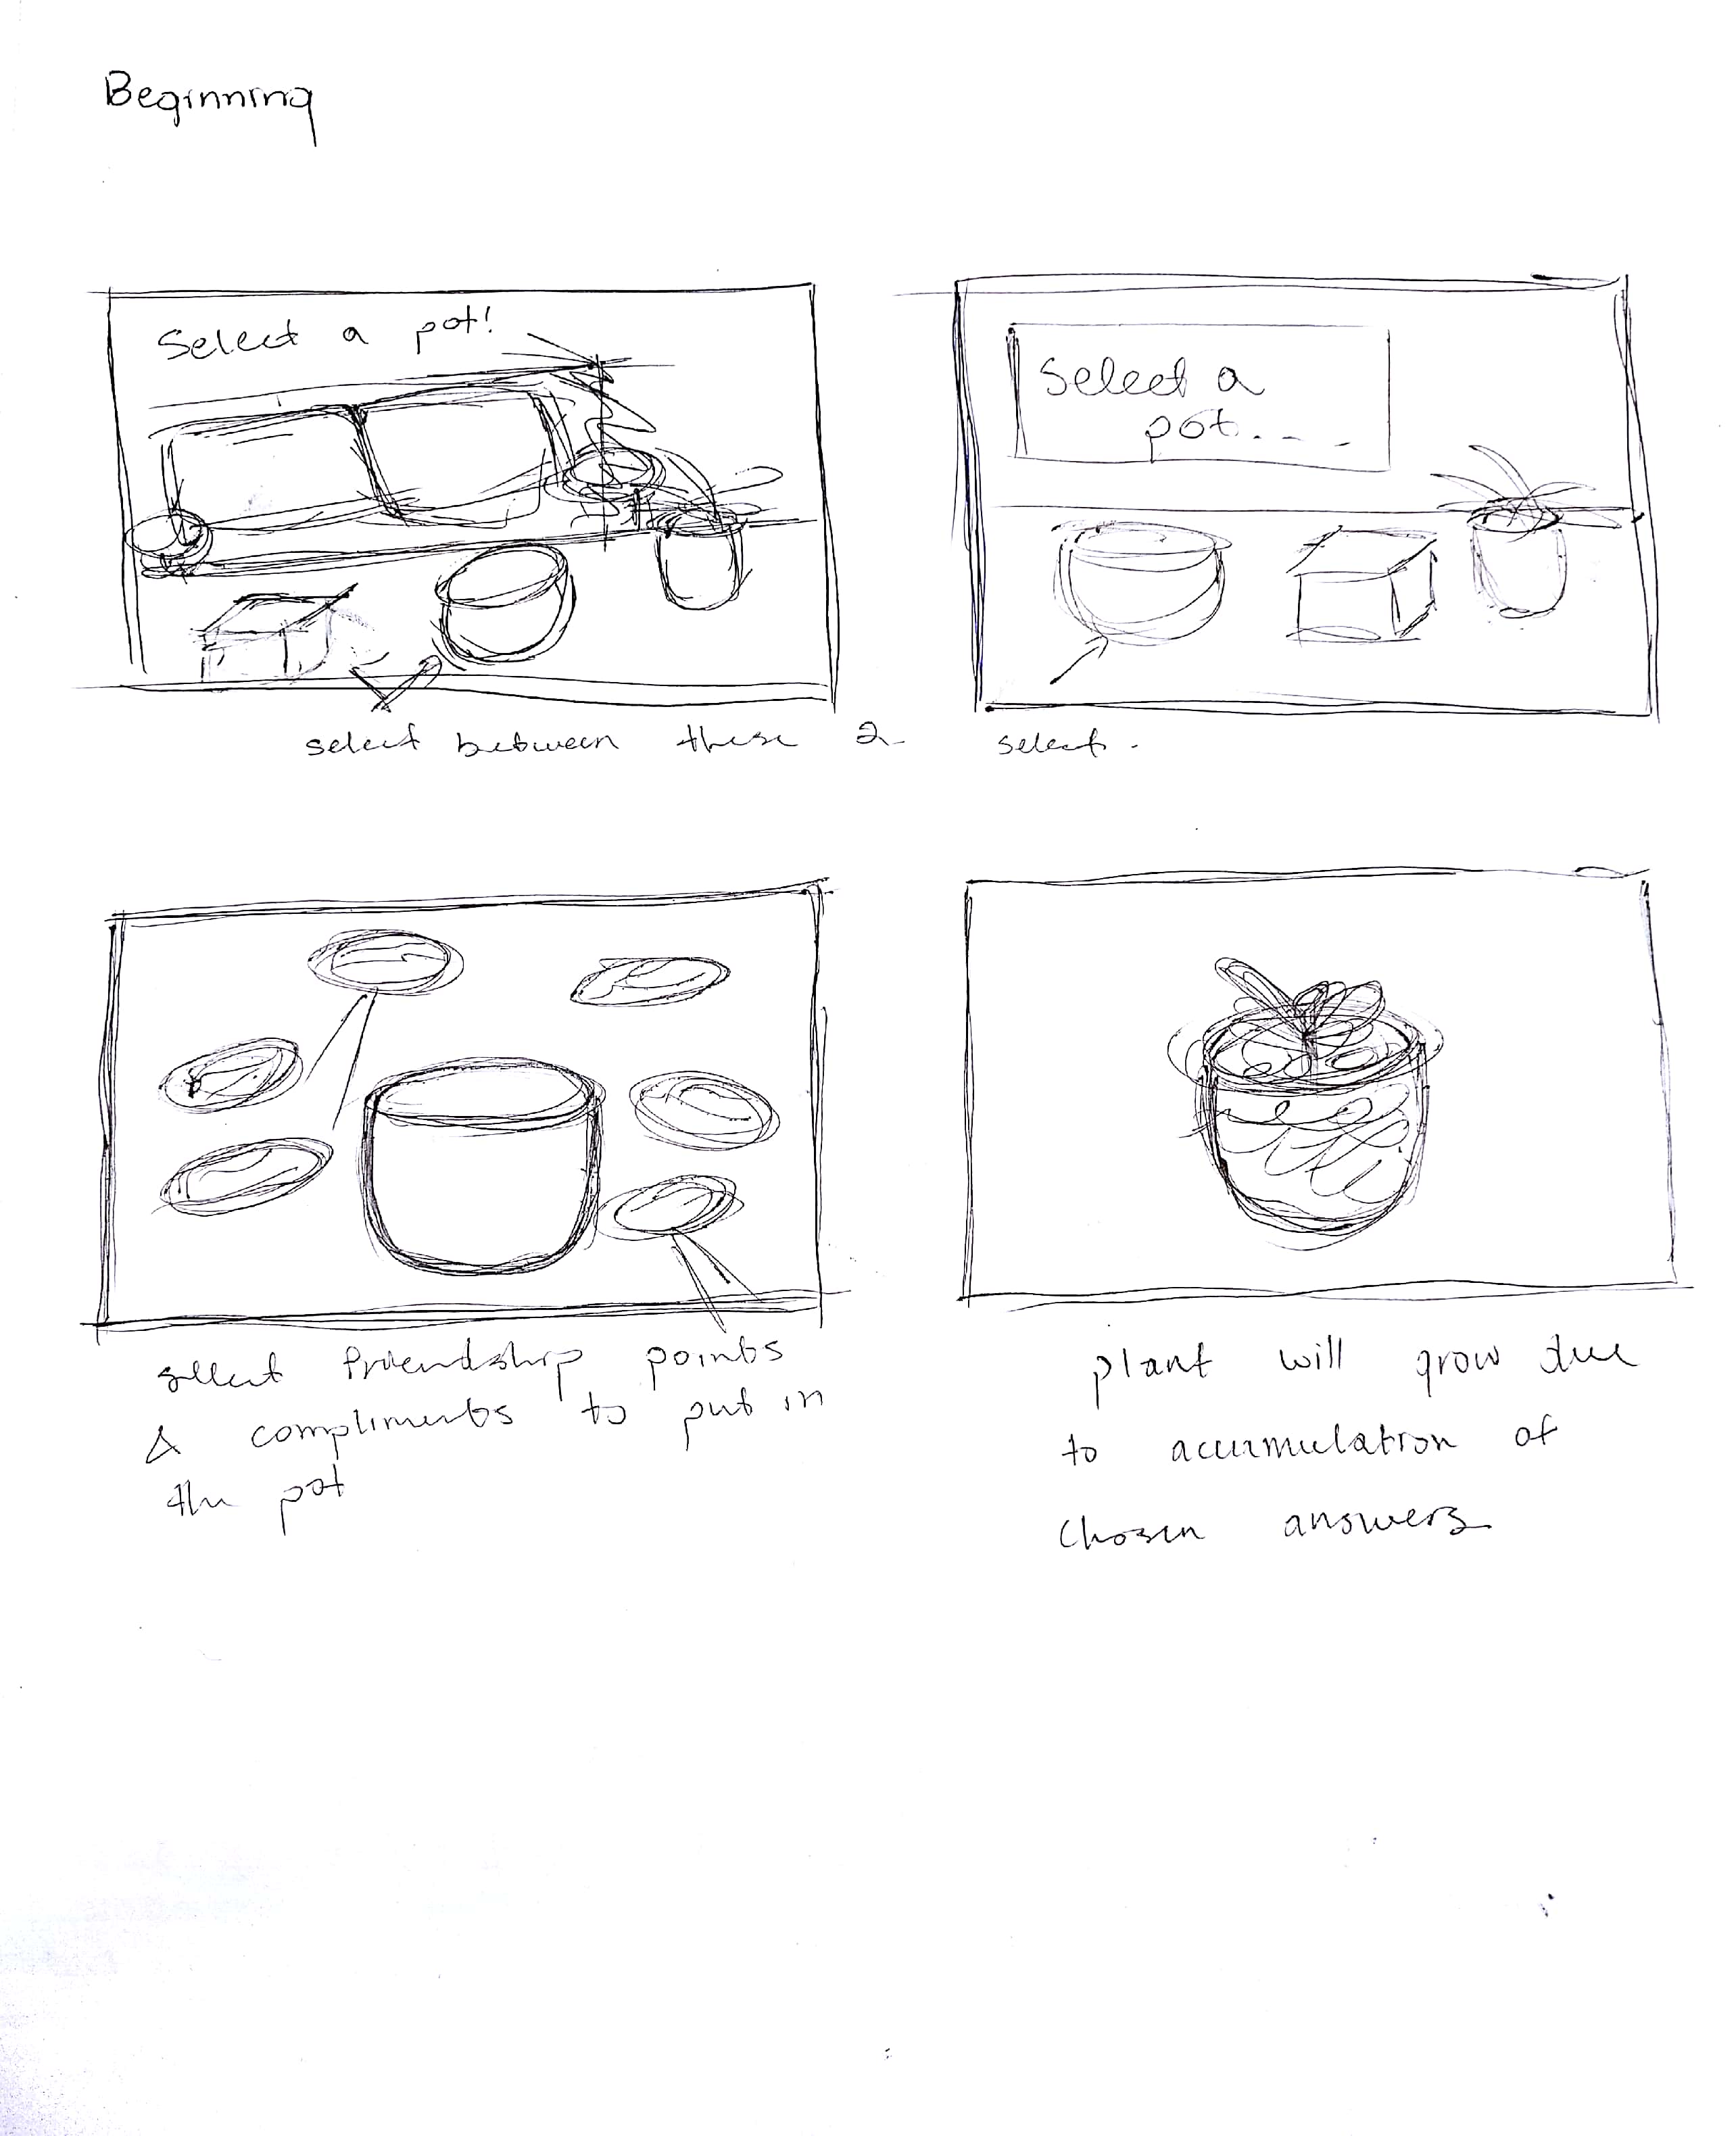 Beginning
Select a pot!
Select a
pot....
select between these 2
select.
select friendship points
& compliments to put in
the pot
plant will grow due
to accumulation of
chosen answers